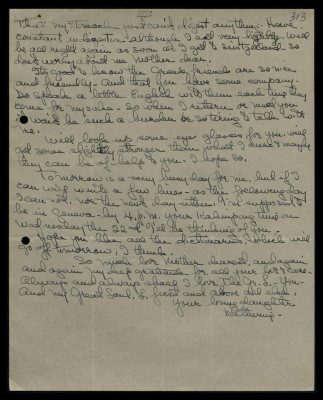 313
that my stomach just can't digest anything. Have
constant indigestion although I eat very lightly. Will
be all right again as soon as I get to Switzerland. So
don't worry about me Mother dear.
It's good to know the Greek friends are so nice
and friendly and that you have some company.
Do speak a little English with them each time they
come for my sake - so when I return or meet you
it won't be such a burden or so tiring to talk with
me.
Will look up some eye glasses for you - will
get some slightly stronger than what I use & maybe
they can be of help to you. I hope so.
Tomorrow is a very busy day for me, but if I
can will write a few lines - as the following day
I can not, nor the next day either. I'm supposed to
be in Geneva - by 4 p.m. your Kalimpong time on
Wednesday the 22nd. I'll be thinking of you.
Hope you like all the dictionaries, which will
go off tomorrow, I think.
So much love Mother dearest, and again
and again my deep gratitude for all your love & care.
Always and always above all I love the
and my Great Soul, first and above all else,
Your loving daughter